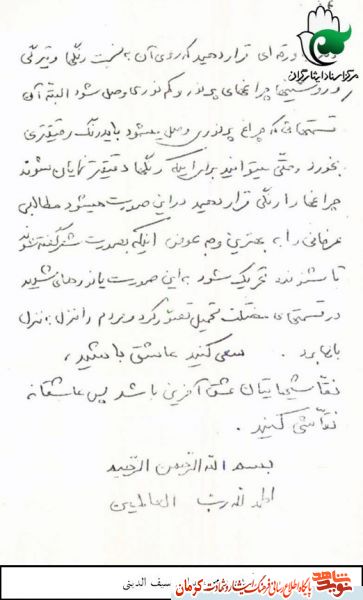 مرکز اسناد ایثارگران
ورقه ای قرار دهید که روی آن به نسبت رنگها و تیرگی
و روشنیها چراغهای پرنور و کم نوری وصل شود البته آن
قسمتهائی که چراغ پرنوری وصل میشود باید رنگ رقیقتری
بخورد و حتی میتوانید برای اینکه رنگها دقیقتر نمایان شوند
چراغها را رنگی قرار دهید در این صورت میشود مطالبی
عرفانی را به بهترین وجه عوض اینکه بصورت شعر گفته شوند
تا شنونده تحریک شود به این صورت با نورهای شدید
در قسمتهای مختلف تحمیل تصور کرد و مردم را منزل به منزل
بالا برد. سعی کنید عاشق باشید،
نقاشیهایتان عشق آفرین باشد پس عاشقانه
نقاشی کنید.
بسم الله الرحمن الرحیم
الحمد لله رب العالمین
سیف الدینی
نوید شاهد
پایگاه اطلاع رسانی فرهنگ ایثار و شهادت کرمان